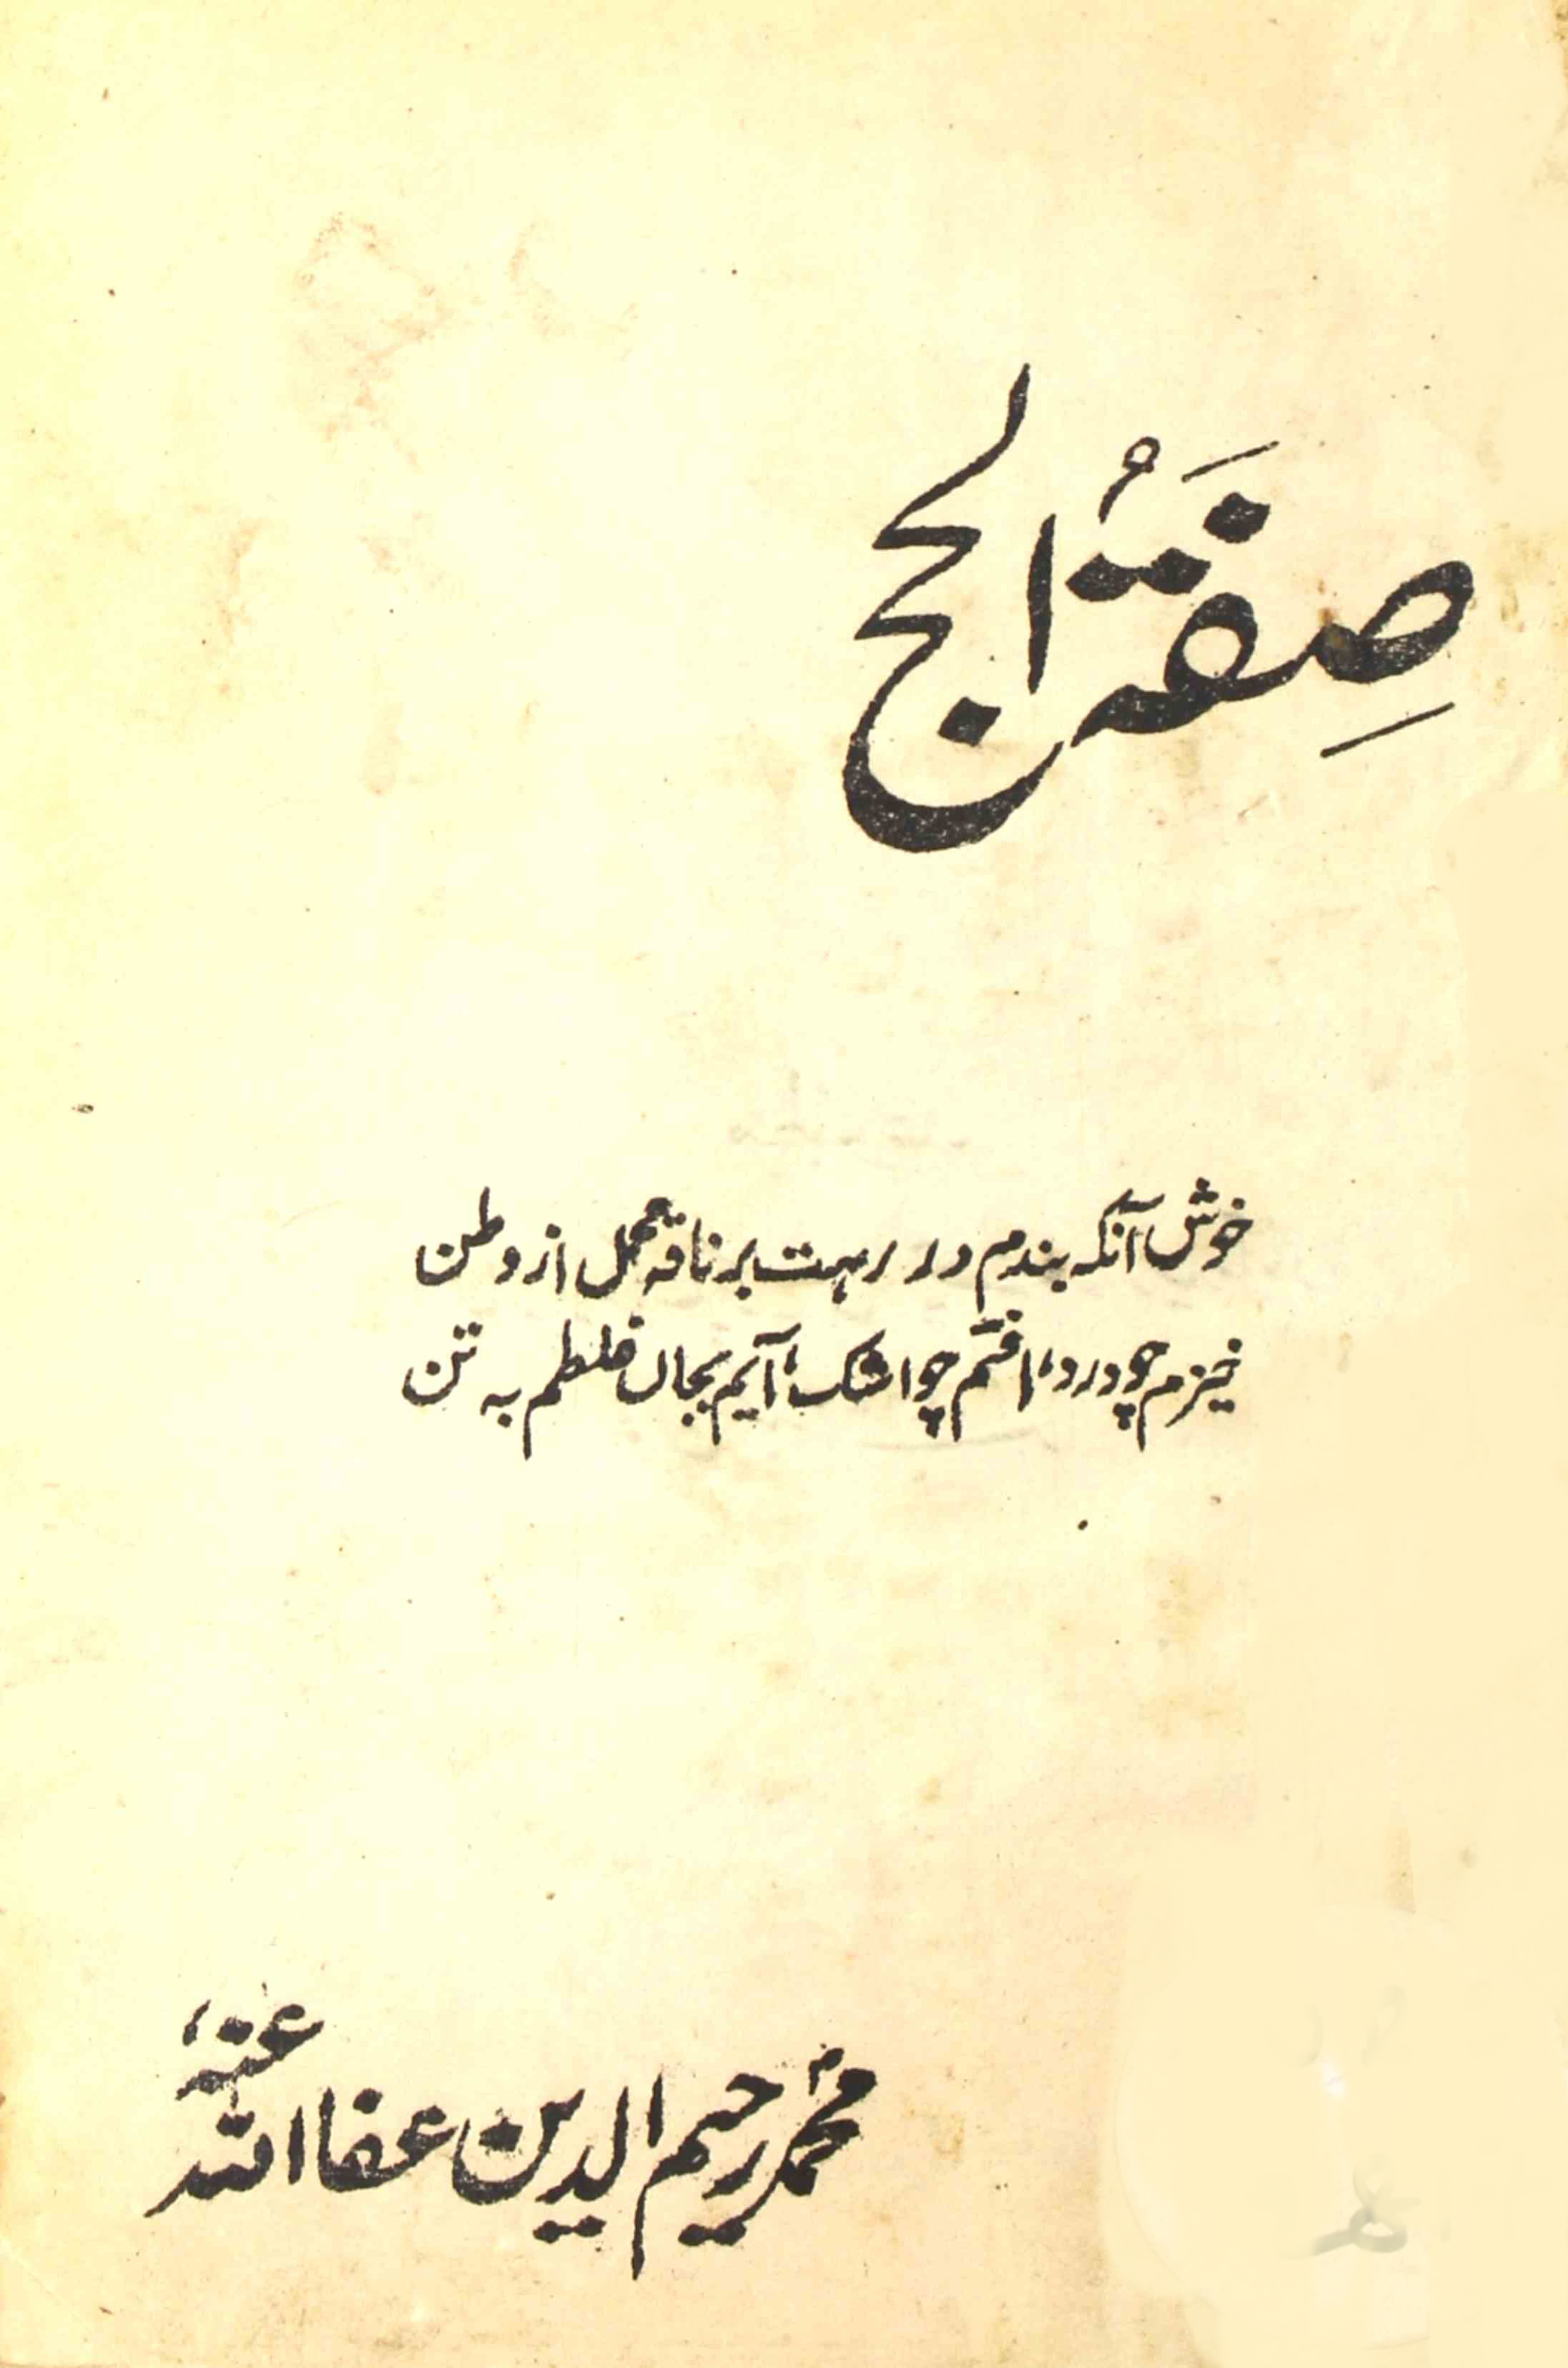 صِفَتُہ الحج
خوش آنکہ بندم در رہت بر ناقہ محمل از وطن
خیزم چو درد، افتم چو اشک، آیم بجاں غلطم بہ تن
محمد رحیم الدین عفا اللہ عنہ،